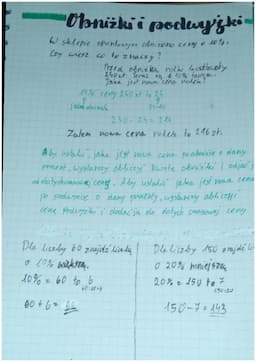 Obniżki i podwyżki
W sklepie sportowym obniżono ceny o 10%.
Czy wiesz co to znaczy?
Przed obniżką rolki kosztowały
240 zł teraz są o 10% tańsze.
Jaka jest nowa cena rolek?
10% ceny 240 zł to 24
240 - 24 = 216
Zatem nowa cena rolek to 216 zł.
Aby ustalić jaka jest nowa cena po obniżce o dany
procent, wystarczy obliczyć kwotę obniżki i odjąć ją
od dotychczasowej ceny. Aby ustalić jaka jest nowa cena
po podwyżce o dany procent, wystarczy obliczyć
cenę podwyżki i dodać ją do dotychczasowej ceny
Dla liczby 60 znajdź liczbę
o 10% większą.
10% = 60 to 6
60 + 6 = 66
Dla liczby 150 znajdź li
o 20% mniejszą
20% = 150 to 7
150 - 7 = 143